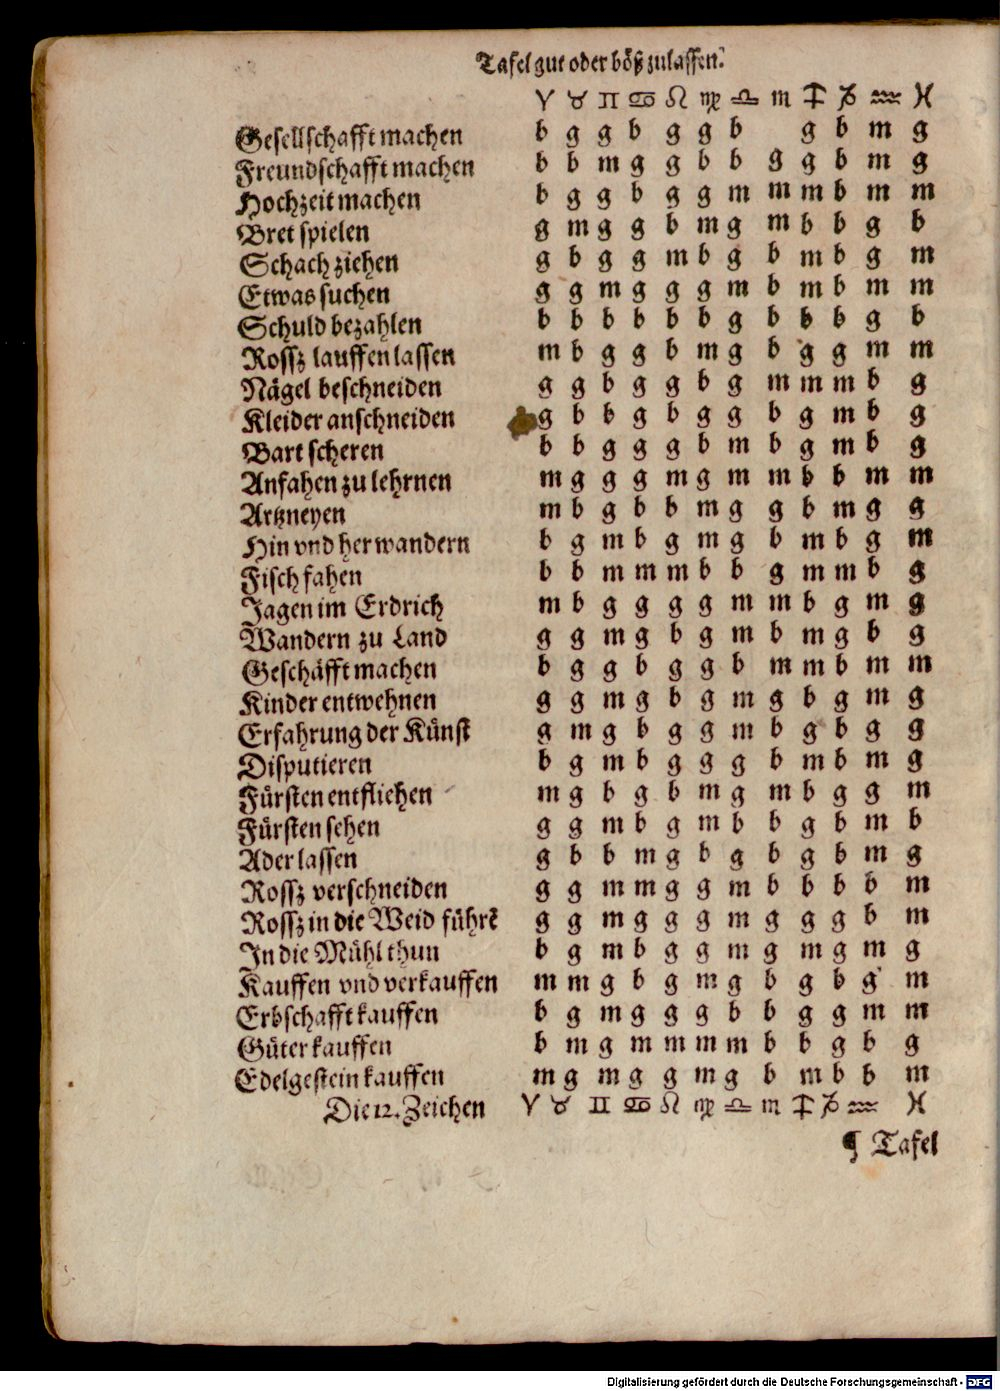 Tafel gut oder böß zulassen.
♈ ♉ ♊ ♋ ♌ ♍ ♎ ♏ ♐ ♑ ♒ ♓
Gesellschafft machen b g g b g g b g b m g
Freundschafft machen b b m g g b b g g b m g
Hochzeit machen b g g b g g m m m b m m
Bret spielen g m g g b m g m b b g b
Schach ziehen g b g g m b g b m b g m
Etwas suchen g g m g g g m b m b m m
Schuld bezahlen b b b b b b g b b b g b
Rossz lauffen lassen m b g g b m g b g g m m
Nägel beschneiden g g b g g b g m m m b g
Kleider anschneiden g b b g b g g b g m b g
Bart scheren b b g g g b m b g m b g
Anfahen zu lehrnen m g g g m g m m b b m m
Artzneyen m b g b b m g g b m g g
Hin vnd her wandern b g m b g m g b m b g m
Fisch fahen b b m m m b b g m m b g
Jagen im Erdrich m b g g g g m m b g m g
Wandern zu Land g g m g b g m b m g b g
Geschäfft machen b g g b g g b m m b m m
Kinder entwehnen g g m g b g m g b g m g
Erfahrung der Künst g m g b g g m b g b g g
Disputieren b g m b g g g b m b m g
Fürsten entfliehen m g b g b m g m b g g m
Fürsten sehen g g m b g m b b g b m b
Ader lassen g b b m g b g b g b m g
Rossz verschneiden g g m m g g m b b b b m
Rossz in die Weid führẽ g g m g g g m g g g b m
In die Mühl thun b g m b g g m g m g m g
Kauffen vnd verkauffen m m g b g m g b g b g m
Erbschafft kauffen b g m g g g b b g g m m
Güter kauffen b m g m m m m b b g b g
Edelgestein kauffen m g m g g m g b m b b m
Die 12. Zeichen ♈ ♉ ♊ ♋ ♌ ♍ ♎ ♏ ♐ ♑ ♒ ♓
¶ Tafel
Digitalisierung gefördert durch die Deutsche Forschungsgemeinschaft - DFG